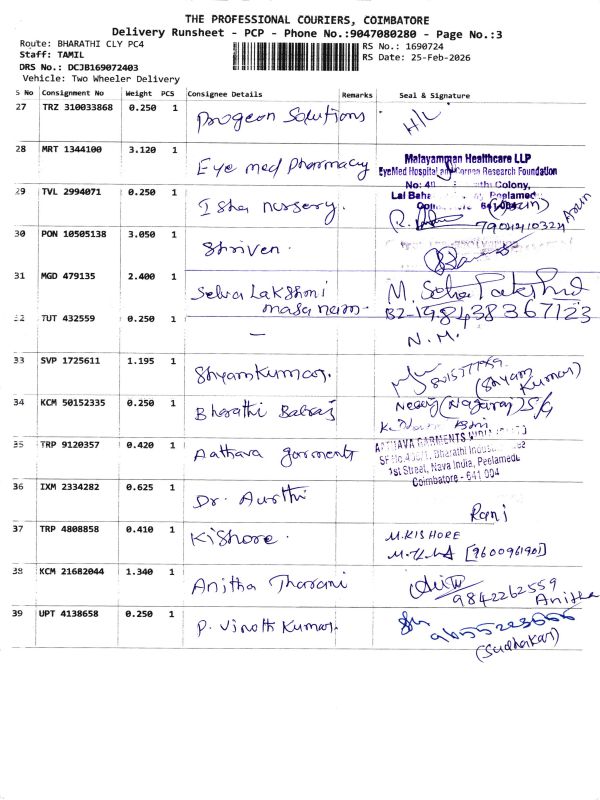 THE PROFESSIONAL COURIERS, COIMBATORE
Delivery Runsheet - PCP - Phone No.:9047080280 - Page No.:3
Route: BHARATHI CLY PC4
RS No.: 1690724
Staff: TAMIL
RS Date: 25-Feb-2026
DRS No.: DCJB169072403
Vehicle: Two Wheeler Delivery
S No Consignment No Weight PCS Consignee Details Remarks Seal & Signature
27 TRZ 310033868 0.250 1 Progeon Solutions H/L
28 MRT 1344100 3.120 1 Eye med Pharmacy
Malayamman Healthcare LLP
EyeMed Hospital Cornea Research Foundation
Colony,
29 TVL 2994071 0.250 1 Isha nursery.
7904410324 Arun
30 PON 10505138 3.050 1 Shriven.
31 MGD 479135 2.400 1 Selva Lakshmi
masanam. B2-19. 8438367123
32 TUT 432559 0.250 1 — N.M.
33 SVP 1725611 1.195 1 Shyamkumar. (Shyam Kumar)
34 KCM 50152335 0.250 1 Bharathi Balraj (Nagaraj) S/G
35 TRP 9120357 0.420 1 Aathava garments
AATHAVA GARMENTS
1st Street, Nava India, Peelamedu
Coimbatore - 641 004
36 IXM 2334282 0.625 1 Dr. Aurthi Rani
37 TRP 4808858 0.410 1 Kishore. M.KISHORE
[9600961901]
38 KCM 21682044 1.340 1 Anitha Tharani
9842262559
Anitha
39 UPT 4138658 0.250 1 P. Vinoth Kumar.
(Sudhakar)